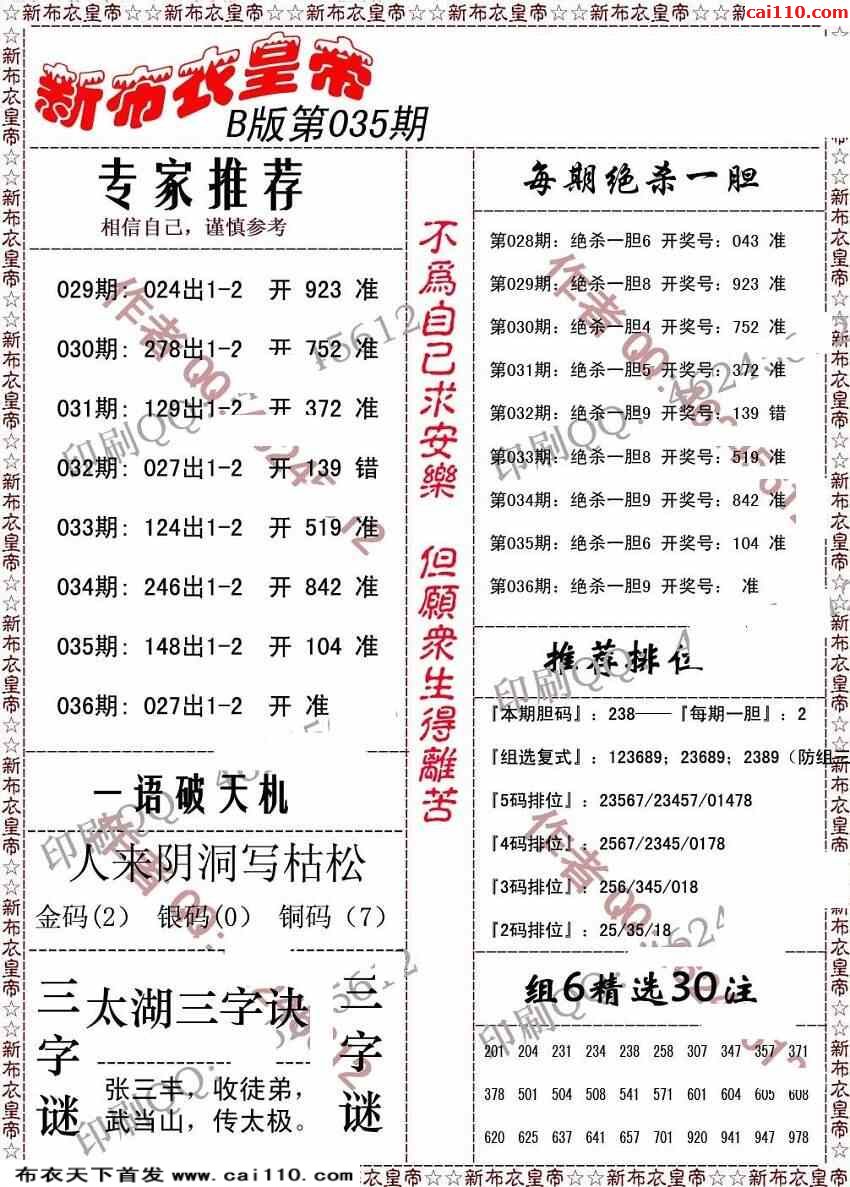 ☆☆新布衣皇帝☆☆新布衣皇帝☆☆新布衣皇帝☆☆新布衣皇帝☆☆新布衣皇帝☆☆新
cai110.com
新布衣皇帝
B版第035期
专家推荐
相信自己，谨慎参考
029期: 024出1-2 开 923 准
030期: 278出1-2 开 752 准
031期: 129出1-2 开 372 准
032期: 027出1-2 开 139 错
033期: 124出1-2 开 519 准
034期: 246出1-2 开 842 准
035期: 148出1-2 开 104 准
036期: 027出1-2 开 准
一语破天机
人来阴洞写枯松
金码(2) 银码(0) 铜码（7）
三字谜
太湖三字诀
张三丰，收徒弟，
武当山，传太极。
三字谜
不為自己求安樂 但願眾生得離苦
每期绝杀一胆
第028期: 绝杀一胆6 开奖号: 043 准
第029期: 绝杀一胆8 开奖号: 923 准
第030期: 绝杀一胆4 开奖号: 752 准
第031期: 绝杀一胆5 开奖号: 372 准
第032期: 绝杀一胆9 开奖号: 139 错
第033期: 绝杀一胆8 开奖号: 519 准
第034期: 绝杀一胆9 开奖号: 842 准
第035期: 绝杀一胆6 开奖号: 104 准
第036期: 绝杀一胆9 开奖号: 准
推荐排位
『本期胆码』: 238——『每期一胆』: 2
『组选复式』: 123689; 23689; 2389（防组三
『5码排位』: 23567/23457/01478
『4码排位』: 2567/2345/0178
『3码排位』: 256/345/018
『2码排位』: 25/35/18
组6精选30注
201 204 231 234 238 258 307 347 357 371
378 501 504 508 541 571 601 604 605 608
620 625 637 641 657 701 920 941 947 978
布衣天下首发 www.cai110.com
☆新布衣皇帝☆☆新布衣皇帝☆☆新布衣皇帝☆☆新布衣皇帝☆